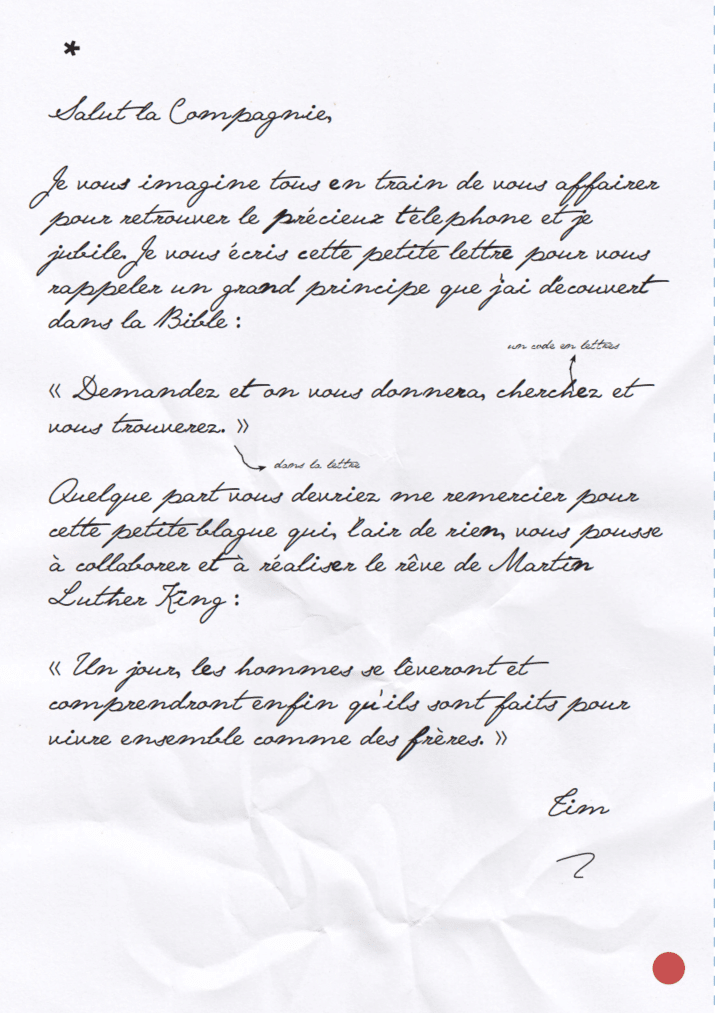 *
Salut la Compagnie,
Je vous imagine tous en train de vous affairer
pour retrouver le précieux téléphone et je
jubile. Je vous écris cette petite lettre pour vous
rappeler un grand principe que j'ai découvert
dans la Bible :
un code en lettres
« Demandez et on vous donnera, cherchez et
vous trouverez. »
dans la lettre
Quelque part vous devriez me remercier pour
cette petite blague qui, l'air de rien, vous pousse
à collaborer et à réaliser le rêve de Martin
Luther King :
« Un jour, les hommes se lèveront et
comprendront enfin qu'ils sont faits pour
vivre ensemble comme des frères. »
Tim